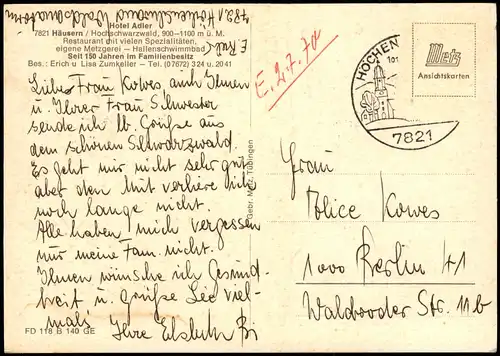 7821 Höchenschwand
E.
Hotel Adler
7821 Häusern / Hochschwarzwald, 900–1100 m ü. M.
Restaurant mit vielen Spezialitäten,
eigene Metzgerei – Hallenschwimmbad
Seit 150 Jahren im Familienbesitz
Bes.: Erich u Lisa Zumkeller – Tel. (07672) 324 u. 2041
Liebes Frau Kowes, auch Ihnen
u. Ihrer Frau Schwester
sende ich lb. Grüße aus
dem schönen Schwarzwald.
Es geht mir nicht sehr gut
aber den Mut verliere ich
noch lange nicht.
Alle haben mich vergessen
nur meine Fam. nicht.
Ihnen wünsche ich Gesund-
heit u. grüße Sie viel-
mals Ihre Elsbeth
FD 118 B 140 GE
Gebr. Metz, Tübingen
E. 2.7.70
HÖCHEN
7821
Metz
Ansichtskarten
Frau
Alice Kowes
1000 Berlin 41
Str. 11b